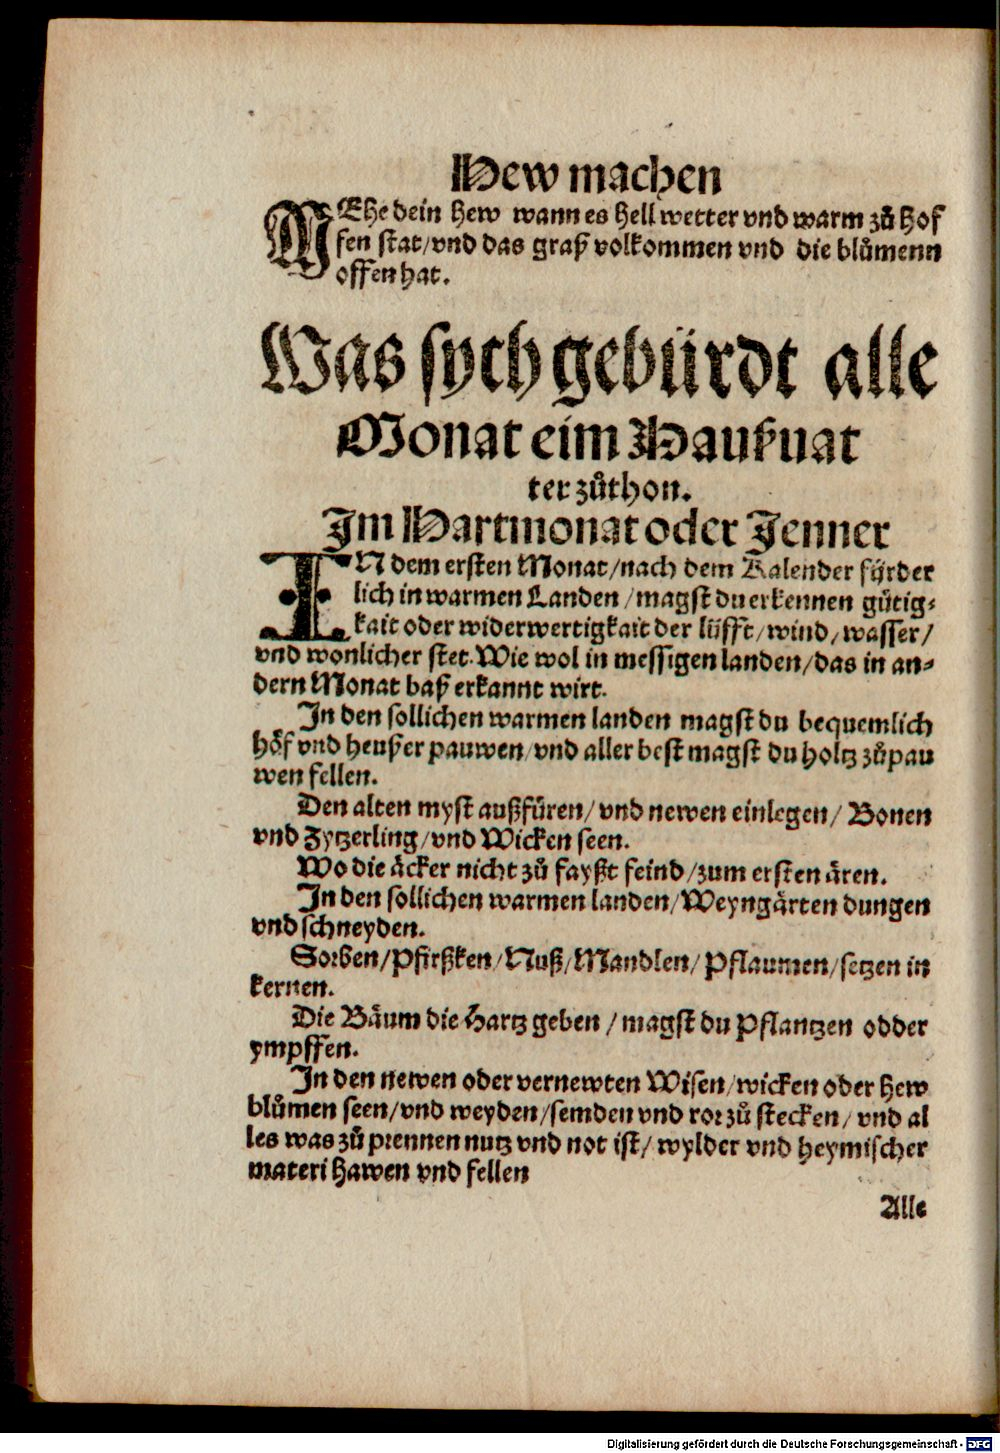 Hew machen
MEhe dein hew wann es hell wetter vnd warm zů hof
fen stat/vnd das graß volkommen vnd die blůmenn
offen hat.
Was sych gebürdt alle
Monat eim Haußuat
ter zůthon.
Im Hartmonat oder Jenner
IN dem ersten Monat/nach dem Kalender fürder
lich in warmen Landen/magst du erkennen gütig⸗
kait oder widerwertigkait der lüfft/wind/wasser/
vnd wonlicher stet. Wie wol in messigen landen/das in an⸗
dern Monat baß erkannt wirt.
In den sollichen warmen landen magst du bequemlich
höf vnd heußer pauwen/vnd aller best magst du holtz zůpau
wen fellen.
Den alten myst außfüren/vnd newen einlegen/Bonen
vnd Zytzerling/vnd Wicken seen.
Wo die äcker nicht zů fayßt seind/zum ersten ären.
In den sollichen warmen landen/Weyngärten dungen
vnd schneyden.
Sorben/Pfirßken/Nuß/Mandlen/Pflaumen/setzen in
kernen.
Die Bäum die Hartz geben/magst du Pflantzen odder
ympffen.
In den newen oder vernewten Wisen/wicken oder hew
blůmen seen/vnd weyden/semden vnd ror zů stecken/vnd al
les was zů prennen nutz vnd not ist/wylder vnd heymischer
materi hawen vnd fellen
Alle
Digitalisierung gefördert durch die Deutsche Forschungsgemeinschaft - DFG